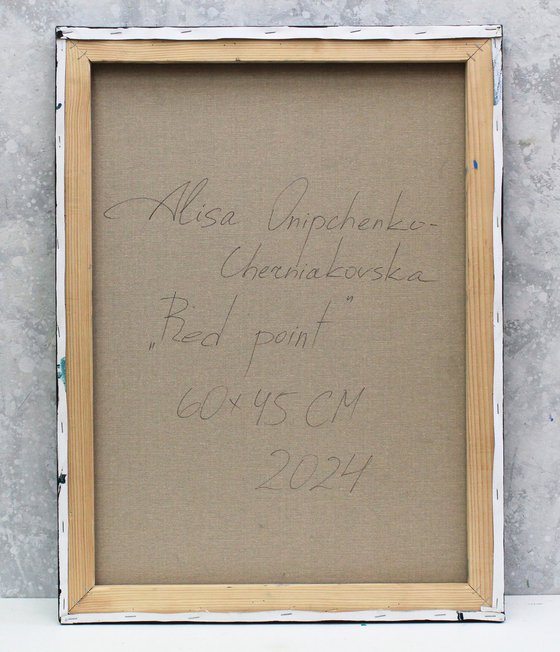 Alisa Onipchenko-
Cherniakovska
„Red point"
60x45 CM
2024